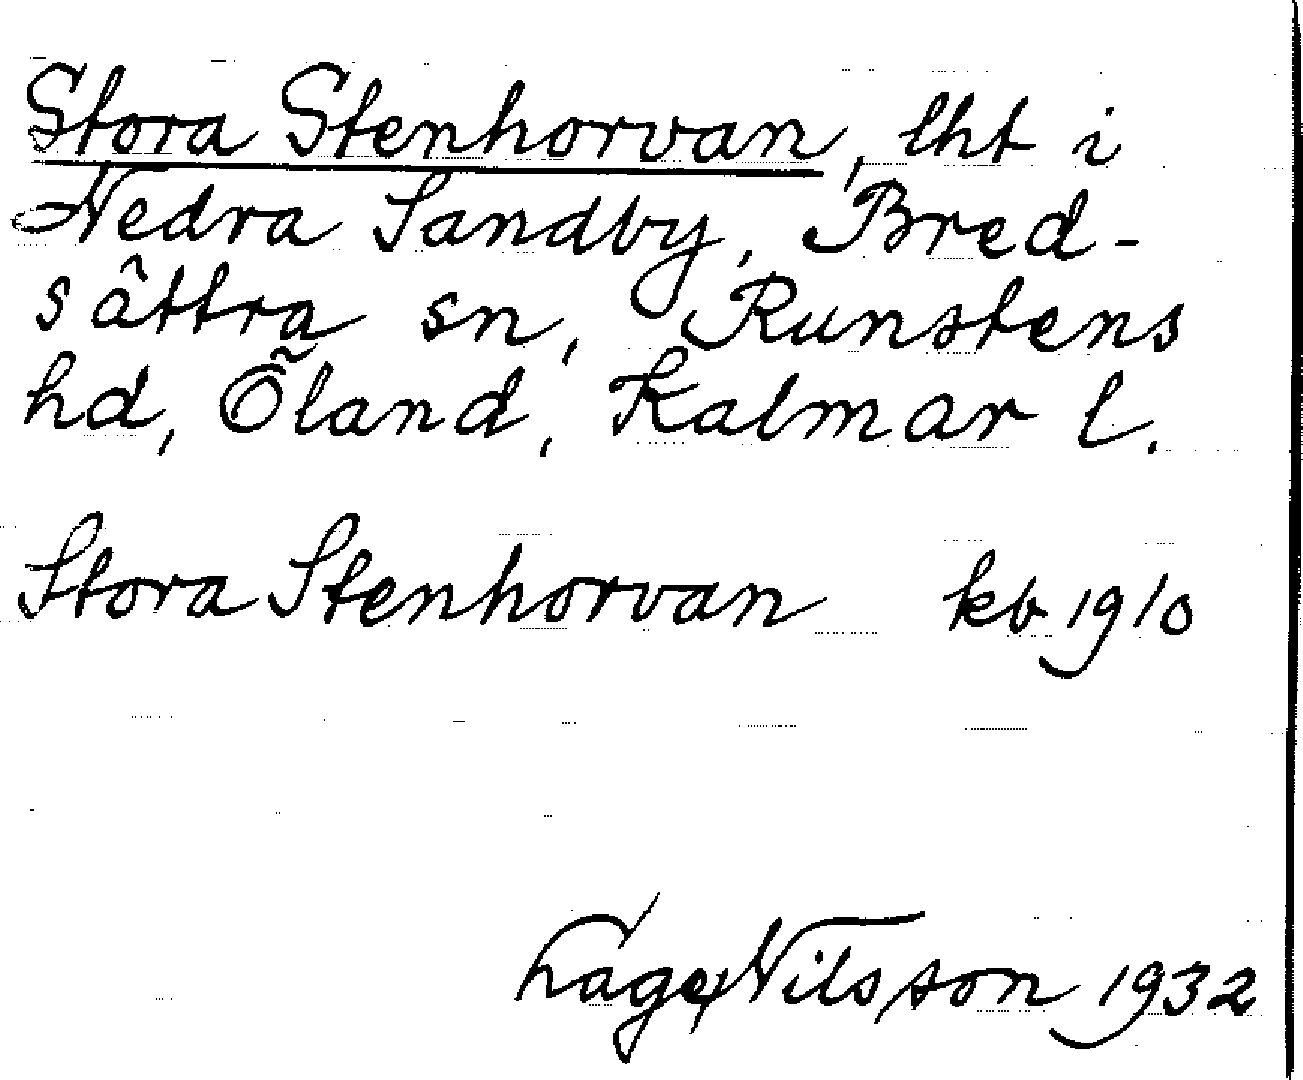 Stora Stenhorvan, lht i
Nedra Sandby, Bred-
sättra sn, Runstens
hd, Öland, Kalmar l.
Stora Stenhorvan kb 1910
Lage Nilsson 1932